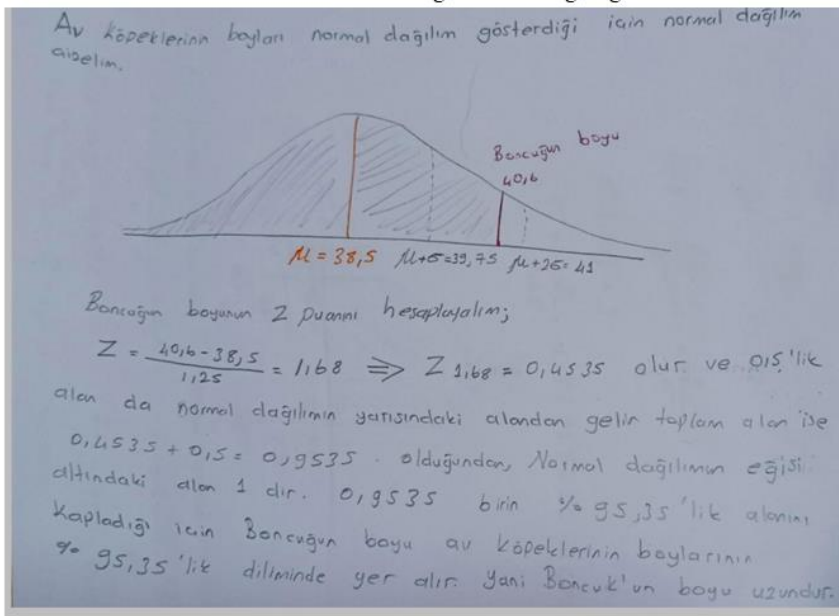 Av köpeklerinin boyları normal dağılım gösterdiği için normal dağılım
çizelim.
Boncuğun boyu
40,6
μ = 38,5 μ+σ=39,75 μ+2σ=41
Boncuğun boyunun Z puanını hesaplayalım;
Z = 40,6-38,5 / 1,25 = 1,68 ⇒ Z 1,68 = 0,4535 olur. ve 0,5'lik
alan da normal dağılımın yarısındaki alandan gelir toplam alan ise
0,4535 + 0,5 = 0,9535 . olduğundan, Normal dağılımın eğisi
altındaki alan 1 dir. 0,9535 birin % 95,35'lik alanını
Kapladığı için Boncuğun boyu av köpeklerinin boylarının
% 95,35'lik diliminde yer alır. Yani Boncuk'un boyu uzundur.